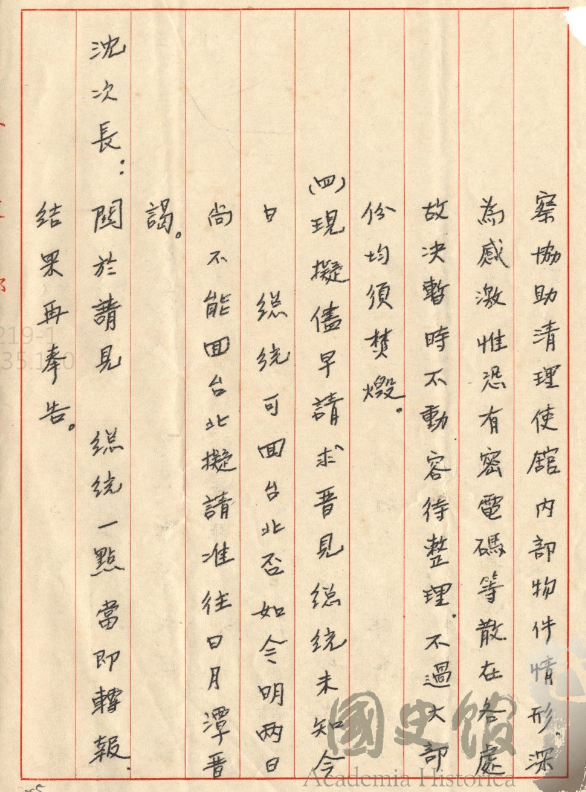 察協助清理使館內部物件情形.深
為感激惟恐有密電碼等散在各處
故決暫時不動容待整理.不過大部
份均須焚燬。
(四)現擬儘早請求晉見總統未知今
日 總統可回台北否如今明兩日
尚不能回台北擬請准往日月潭晉
謁。
沈次長：關於請見 總統一點當即轉報.
結果再奉告。
國史館
Academia Historica